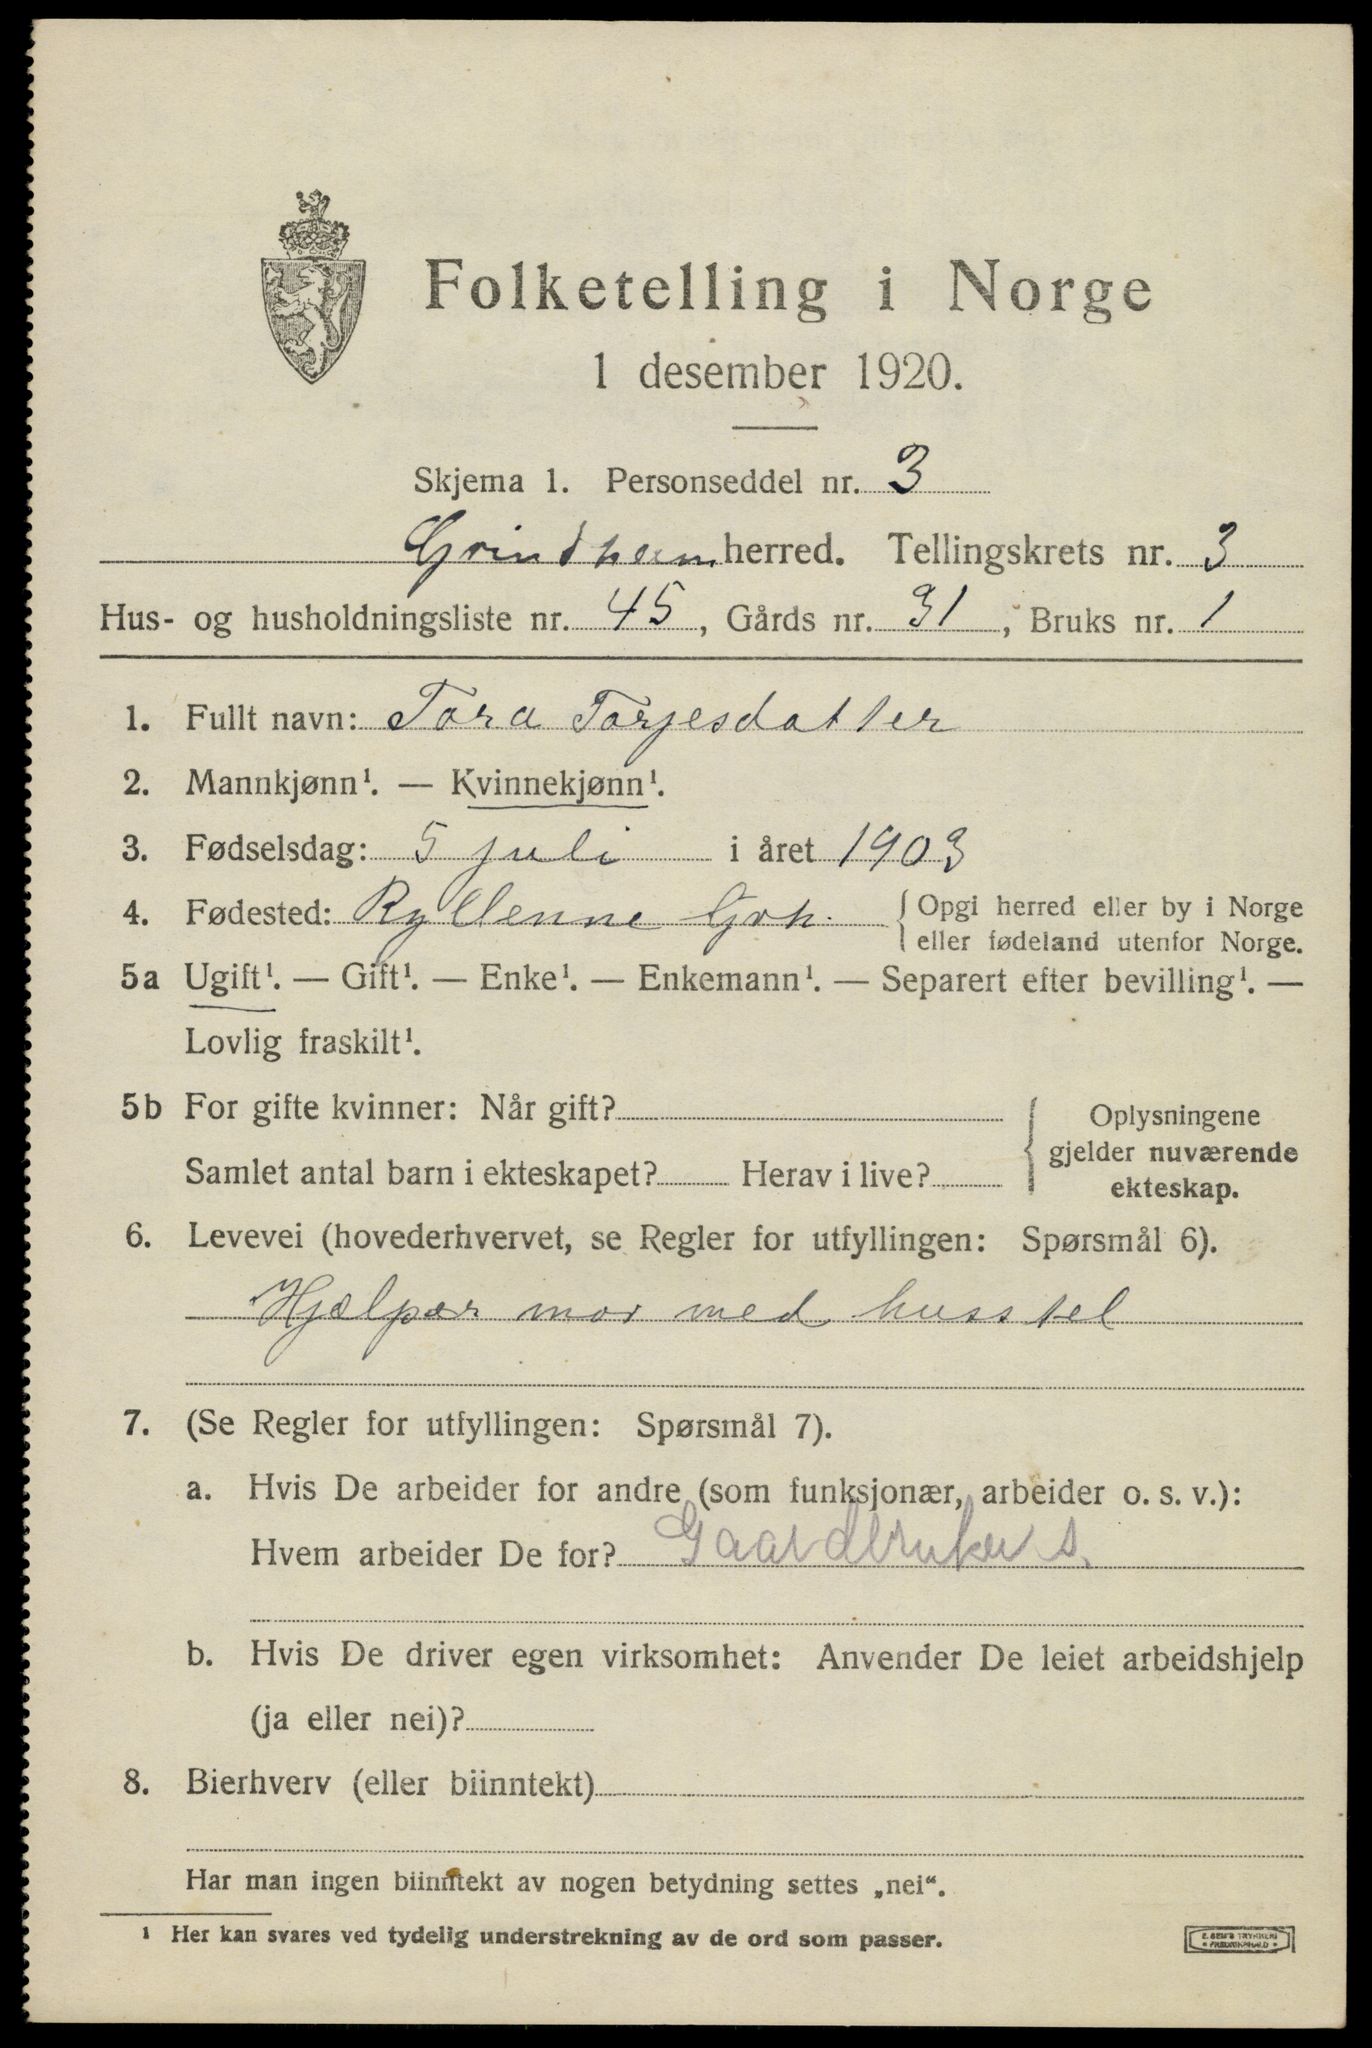 Folketelling i Norge
1 desember 1920.
Skjema 1. Personseddel nr. 3
Grindheim herred. Tellingskrets nr. 3
Hus- og husholdningsliste nr. 45, Gårds nr. 31, Bruks nr. 1
1. Fullt navn: Tora Torjesdatter
2. Mannkjønn¹. — Kvinnekjønn¹.
3. Fødselsdag: 5 juli i året 1903
4. Fødested: Grh. { Opgi herred eller by i Norge
eller fødeland utenfor Norge.
5a Ugift¹. — Gift¹. — Enke¹. — Enkemann¹. — Separert efter bevilling¹. —
Lovlig fraskilt¹.
5b For gifte kvinner: Når gift?
Samlet antal barn i ekteskapet? Herav i live?
{ Oplysningene
gjelder nuværende
ekteskap.
6. Levevei (hovederhvervet, se Regler for utfyllingen: Spørsmål 6).
Hjælper mor med husstel
7. (Se Regler for utfyllingen: Spørsmål 7).
a. Hvis De arbeider for andre (som funksjonær, arbeider o. s. v.):
Hvem arbeider De for? Gaardbruker s.
b. Hvis De driver egen virksomhet: Anvender De leiet arbeidshjelp
(ja eller nei)?
8. Bierhverv (eller biinntekt)
Har man ingen biinntekt av nogen betydning settes „nei“.
¹ Her kan svares ved tydelig understrekning av de ord som passer.